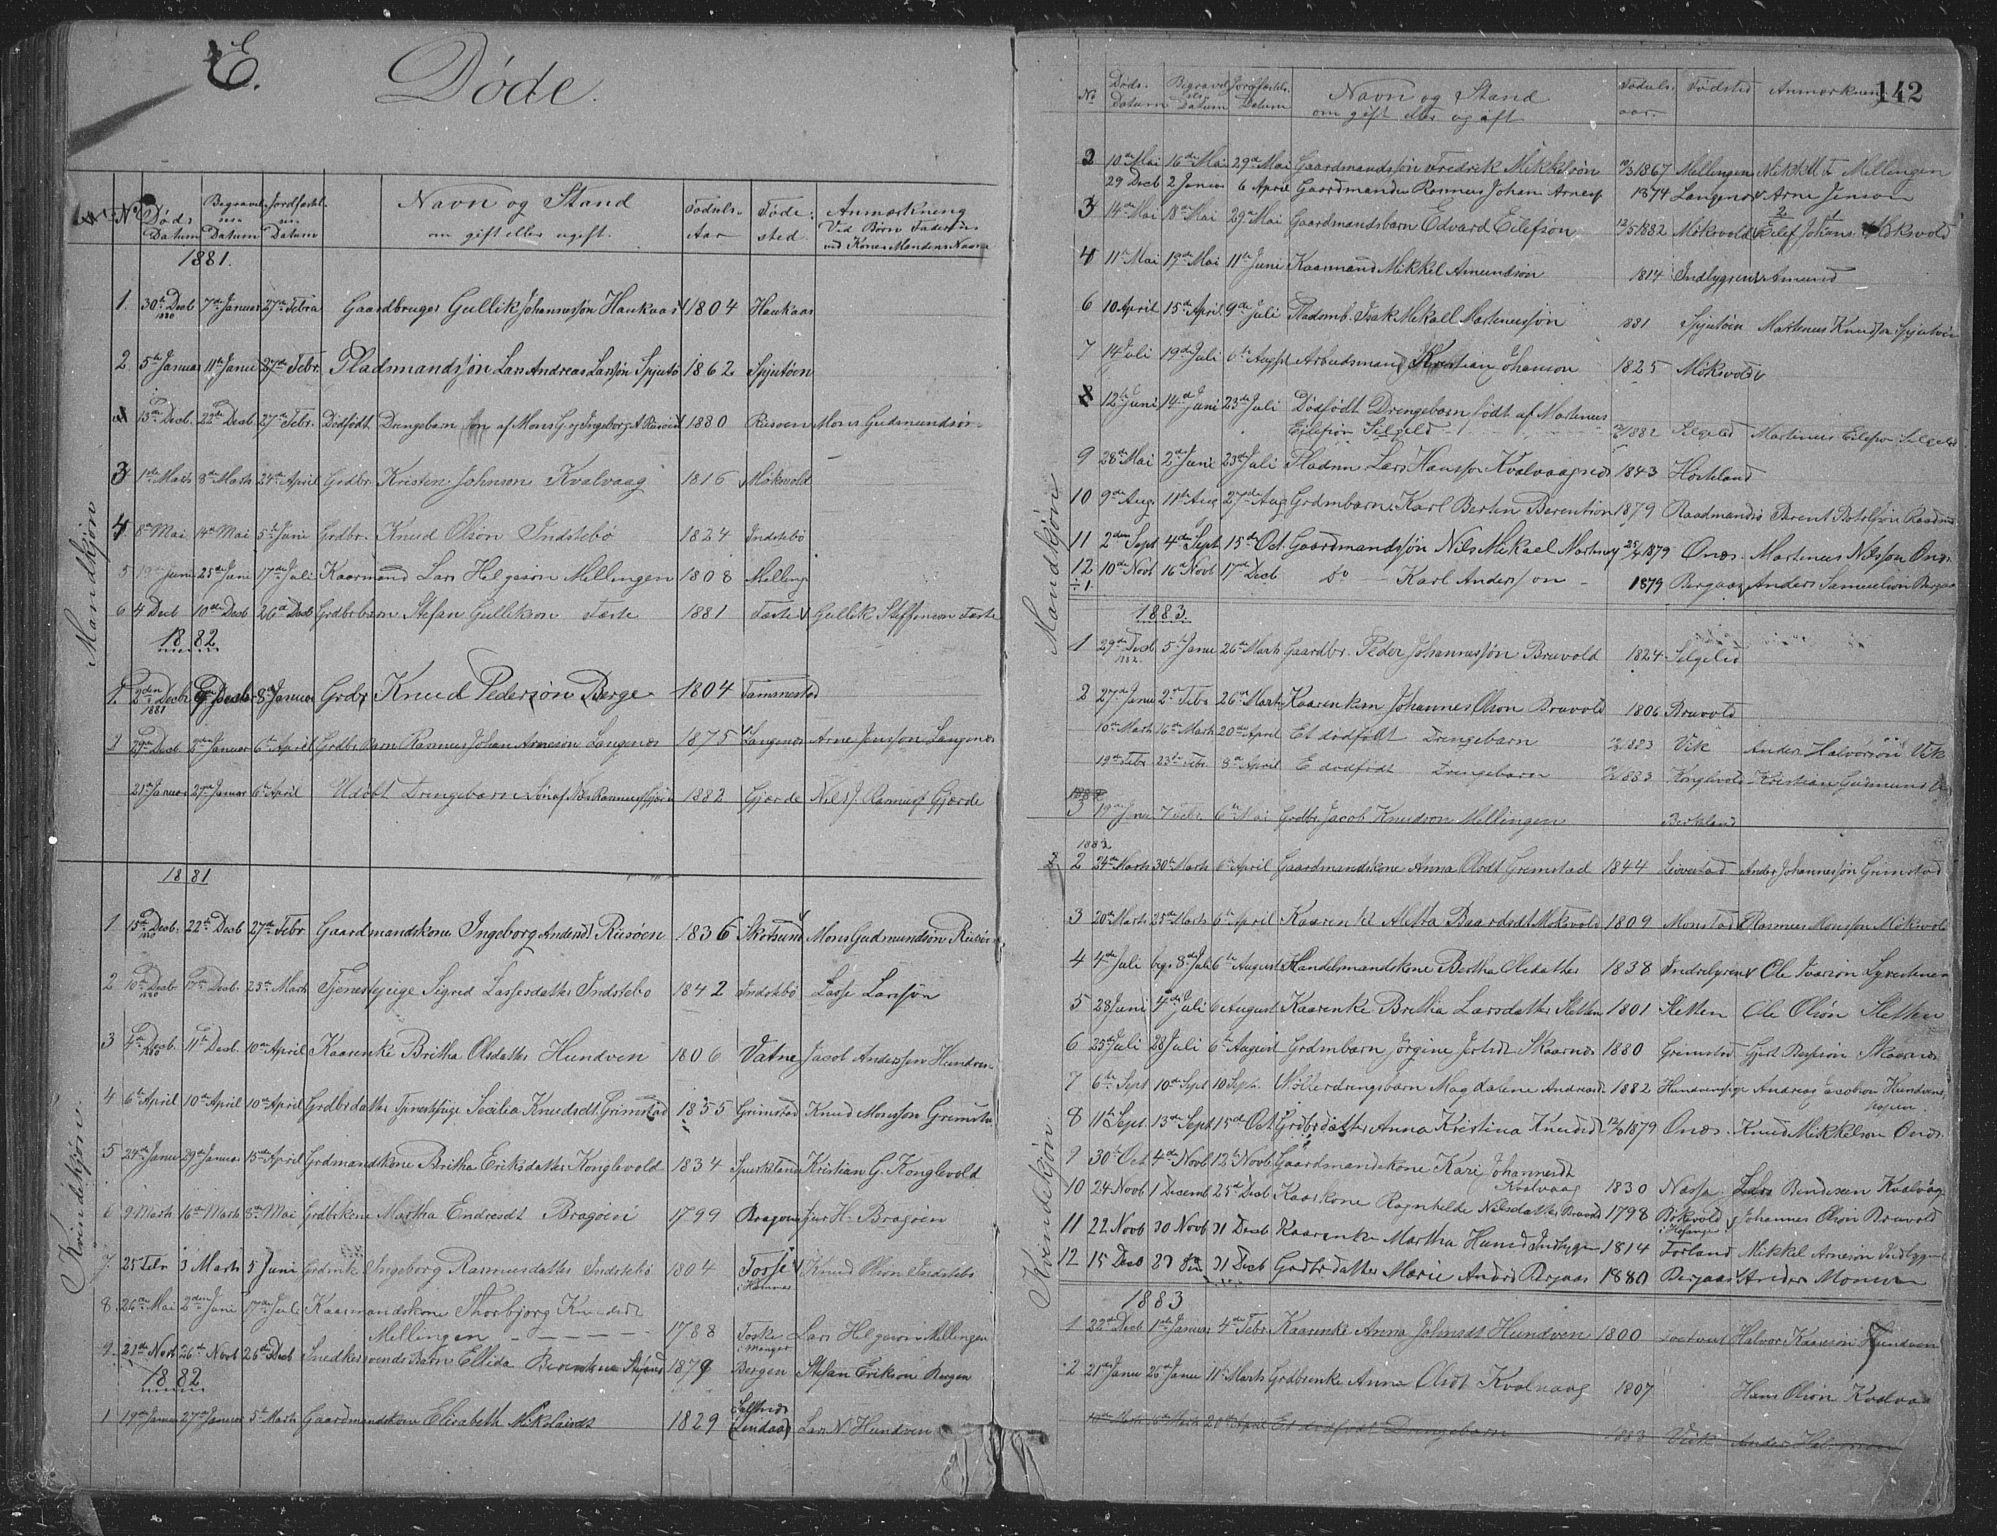 E. Døde.
No Døds Datum Begravel- ses Datum Jordfæstel- ses Datum Navn og Stand om gift eller ugift. Fødsels- Aar Føde- sted. Anmærkning Ved Børn Faderens ved Koner Mandens Navn
Mandkjøn
1881.
1. 30te Decb 1880 7de Januar 27de Febru Gaardbruger Gullik Johannessøn Haukaas 1804 Haukaas
2 5te Januar 11te Janu 27de Febr. Pladsmandssøn Lars Andreas Larssøn Spjutø 1862 Spjutøen
15de Decb. 22de Decb 27de Febr. Dødfødt Drengebarn søn af Mons G. og Ingeborg A. Risøen 1880 Risøen Mons Gudmundsøn
3 1ste Marts 8de Marts 24de April Grdbr. Kristen Johnsøn Kvalvaag 1816 Mokvold
4 8de Mai 14de Mai 5te Juni Grdbr. Knud Olsøn Indstebø 1824 Indstebø
5 19de Juni 25de Juni 17de Juli Kaarmand Lars Helgesøn Mellingen 1808 Melling
6 4 Decb 10de Decb 26de Decb Grdbrbarn Stefan Gulliksøn Tæste 1881 Tæste Gullik Steffensøn Tæste
1882
1. 2den Decbr 1881 Decbr 8de Januar Grdbr Knud Pedersøn Berge 1804 Tammestad
2 29de Decb 2den Januar 6te April Grdbr Barn Rasmus Johan Arnesøn Langenæs 1875 Langenæs Arne Jenssøn Langenæs
21de Januar 27de Januar 6te April Udøbt Drengebarn Søn af Nils Rasmus Gjerde 1882 Gjerde Nils J. Rasmus Gjerde
Kvindekjøn.
1881
1 15de Decb. 1880 22de Decb 27de Febr. Gaardmandskone Ingeborg Andersdt Risøen 1836 Skotsund Mons Gudmundsøn Risøen
2 10de Decb 1880 17de Decb. 23de Marts Tjenestpige Sigrid Lassesdatter Indstebø 1842 Indstebø Lasse Larssøn
3 4de Decb. 1880 11te Decb. 10de April Kaarenke Britha Olsdatter Hundven 1806 Vatne Jacob Anderssøn Hundven
4 6te April 10de April 10de April Grdbrdatter Tjenestpige Secilia Knudsdt. Grimstad 1855 Grimstad Knud Monssøn Grimstad
5 24de Janu 29de Januar 15de April Grdmandskone Britha Eriksdatter Konglevold 1834 Spurkeland Kristian G. Konglevold
6 9 Marts 16de Marts 8de Mai Grdbrkone Martha Endresdt Bragøen 1799 Bragøen Iver H. Bragøen
7. 25 Febr 3 Marts 5 Juni Grdenke Ingeborg Rasmusdatter Indstebø 1804 Torsje i Hamre Knud Olsøn Indstebø
8. 26de Mai 2den Juni 17de Juli Kaarmandskone Thorbjørg Knudsdt
Mellingen 1788 Toske i Manger Lars Helgesøn Mellingen
9. 21de Novb 26de Novb 26de Decb Snedkersvends Barn Ellida Berentine Stefans 1879 Bergen Stefan Eriksøn Bergen
1882
1 19de Januar 27de Januar 5te Marts Gaardmandskone Elisabeth Nikolaisdt 1829 Sæltveds (Lindaas) Lars N. Hundven
142
No Døds- Datum Begravel- ses Datum Jordfæstels. Datum Navn og Stand om gift eller ugift Fødsels- aar. Fødsted Anmærkning
Mandkjøn
2 10de Mai 16de Mai 29de Mai Gaardmandssøn Fredrik Mikkelsøn 1867 Mellingen Mikkel T. Mellingen
29 Decb 2 Januar 6 April Gaardmandss Rasmus Johan Arnes 1874 Langenæs Arne Jensøn
3 14de Mai 18de Mai 29de Mai Gaardmandsbarn Edvard Eilefsøn 12/5 1882 Mokvold Eilef Johans Mokvold
4 11te Mai 19de Mai 11te Juni Kaarmand Mikkel Amundsøn 1814 Indbygren Amund
6 10 April 15de April 9de Juli Pladsmb. Isak Mikael Martinussøn 1881 Spjutøen Martinus Knudsøn Spjutøen
7 14 Juli 19de Juli 6te August Arbeidsmand Kristian Johansøn 1825 Mokvold
8 12te Juni 14de Juni 23de Juli Dødfødt Drengebarn født af Martinus
Eilefsøn Selgeld 1882 Selgeld Martinus Eilefsøn Selgeld
9 28de Mai 2de Juni 23de Juli Pladsm Lars Hanssøn Kvalvaagnes 1843 Hopland
10 9de Aug. 11te Aug 27de Aug Grdmbarn Karl Berten Berentsøn 1879 Raadmandis Berent
11 2den Sept 4de Sept 15de Oct. Gaardmandssøn Nils Mikael Martinus 25/4 1879 Onæs Martinus Nilssøn Onæs
12 10de Novb 16te Novb 17de Decb Do Karl Anderssøn 1879 Bergaas Anders Samuelsøn Bergaas
1883.
1 29de Decb 1882 5te Janu 26de Marts Gaardbr. Peder Johannessøn Bruvold 1824 Selgeld
2 27de Janu 2de Febr 26de Marts Kaarenkem Johannes Olsøn Bruvold 1806 Bruvold
10de Marts 16de Marts 20de April Et dødfødt Drengebarn 1883 Vik Anders Halvorsøn Vik
19de Febr 23de Febr 8de April E dødfødt Drengebarn 1883 Konglevold Kristian Gudmunds
3 19de Janu 7 Febr. 6te Mai Grdbr Jacob Knudsøn Mellingen Birkeland
Kvindekjøn.
1882
2 24de Marts 30te Marts 6te April Gaardmandskone Anna Olsdt Grimstad 1844 Siverstad Anders Johannessøn Grimstad
3 20de Marts 25de Marts 6te April Kaarenke Metha Baardsdt Mokvold 1809 Monstad Rasmus Monssøn Mokvold
4 4de Juli begr 8de Juli 6te August Handelsmandskone Bertha Olsdatter 1838 Indrelyren Ole Ivarsøn
5 28 Juni 4de Juli 6 August Kaarenke Britha Larsdatter Sletten 1801 Sletten Ole Olsøn Sletten
6 25de Juli 28 Juli 6te August Grdmbarn Jørgine Skaarnæs 1880 Grimstad Gjert Skaarnæs
7 6te Sept 10de Sept 10 Sept. Magdalene Andreasd. 1882 Andreas Jacobsøn Hundven
8 11te Sept. 13de Sept 15de Oct. Grdbrdatter Anna Kristina Knudsd 1879 Onæs Knud Mikkelsøn Onæs.
9 30te Oct 4de Novb 12te Novb Gaardmandskone Kari Johannesdt
Kvalvaag 1830 Næsse Kvalvaag
10 24 Novb 1 Decemb 25de Decb Kaarkone Ragnhilde Nilsdatter Bruvold 1798 Bokvold Johannes Olsøn Bruvold
11 22 Novb 30 Novb 31 Decb Kaarenke Martha Indbygren 1814 Forland Mikkel Arnesøn
12 15 Decb 31 Decb Grdbrdatter Marie Andrs Bergaas 1880 Bergaas Anders
1883
1 22de Decb 1ste Januar 4de Febr. Kaarenke Anna Johnsdt Hundven 1800 Halvor Hundven
2 21de Janu 26de Janu 11te Marts Grdbrenke Anna Olsdt Kvalvaag 1807 Hans Olsøn Kvalvaag
10de Marts 16de Marts 20de April Et dødfødt Drengebarn 1883 Vik Anders Halvorsøn